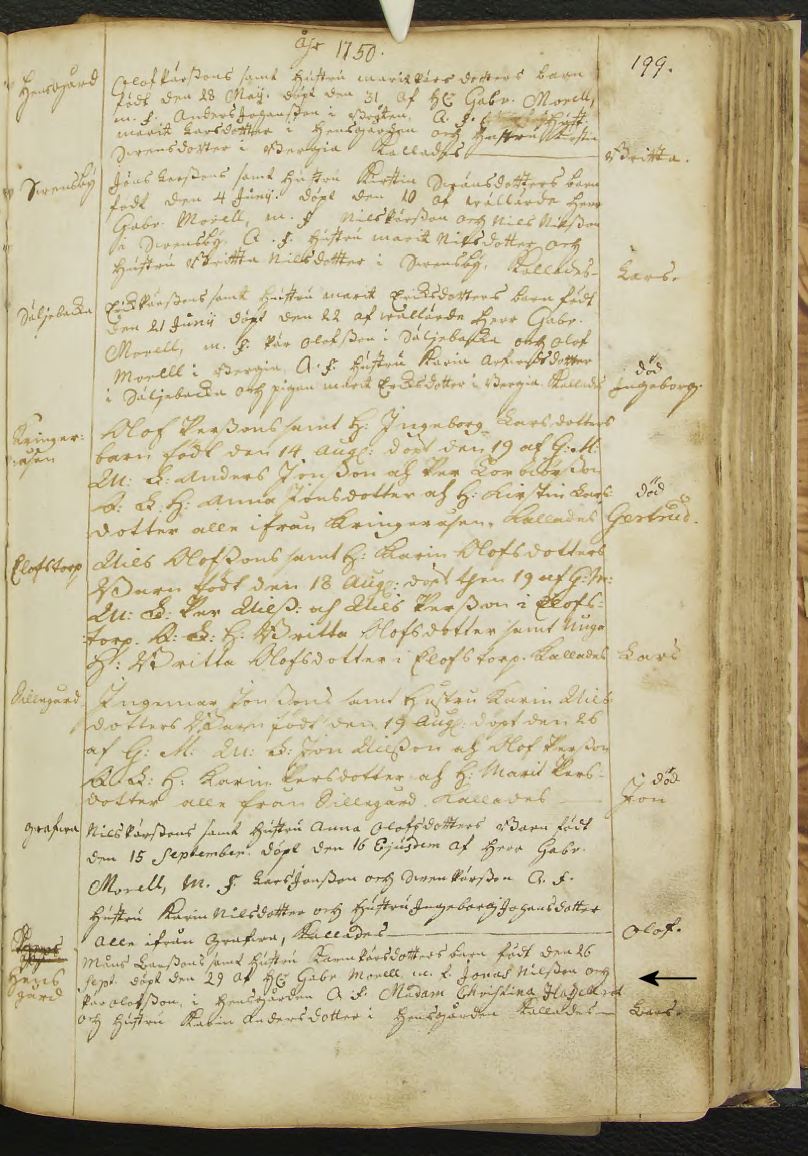 åhr 1750.
199.
Hensgård
Olof Pärßons samt hustru marit Pärs dotters barn
födt den 28 Maij. döpt den 31 af H: Gabr. Morell,
m. f. Anders Joganßon i A. f.
marit Larsdotter i Hensgården och hustru Kirstin
Swensdotter i Bergia Kallades
Britta.
Swensby
Jöns Larßons samt hustru Kirstin Swänsdotters barn
födt den 4 Junij. döpt den 10 af wällärde Herr
Gabr. Morell, m. f. Nils Pärßon och Nils Nilßon
i Swensby. A. f. hustru marit Nilsdotter och
hustru Britta Nilsdotter i Swensby. Kallades
Lars.
Säljebacka
Erik Pärßons samt hustru marit Eriksdotters barn födt
den 21 Junij döpt den 22 af wällärde Herr Gabr.
Morell, m. f. Pär Olofßon i Säljebacka och Olof
Morell i Bergia. A. f. hustru Karin dotter
i Säljebacka och pigan marit Eriksdotter i Bergia. Kallades
död
Ingeborg.
Kringer:
:åsen
Olof Perßons samt H: Ingeborg Larsdotters
barn födt den 14 Aug: döpt den 19 af G: M:
M: F: Anders Jonßon ah Per
A: F: H: Anna Jonsdotter ah H: Kirstin Lars
dotter alle ifrån Kringeråsen. Kallades
död
Gertrud.
Elofstorp
Nils Olofßons samt H: Karin Olofsdotters
Barn födt den 18 Aug: döpt then 19 af G: M:
M: F: Per Nilß: ah Nils Perßon i Elofs:
:torp. A: F: H: Britta Olofsdotter samt
P: Britta Olofsdotter i Elofstorp. Kallades
Lars
Dillegård
Ingemar Jonßons samt Hustru Karin Nils
dotters Barn födt den 19 Aug: döpt den 26
af G: M: M: F: Jon Nilßon ah Olof Perßon
A: F: H: Karin Persdotter ah H: Marit Pers-
dotter alle från Dillegård. Kallades
död
Jon
Grafwa
Nils Pärßons samt hustru Anna Olofsdotters Barn födt
den 15 September. döpt den 16 Ejusdem af Herr Gabr.
Morell, M. f. Lars Jonßon och Swen Pärßon A. f.
hustru Karin Nilsdotter och hustru Ingeborg Joganßdotter
alle ifrån Grafwa, Kallades
Olof.
Hens
gård
Måns Larßons samt hustru Karin Pärsdotters barn födt den 26
Sept. döpt den 29 af H: Gabr Morell. m. f. Jonas Nilßon och
Pär Olofßon, i Hensgården A. f. Madam Christina
och hustru Karin Andersdotter i Hensgården Kallades
Lars.